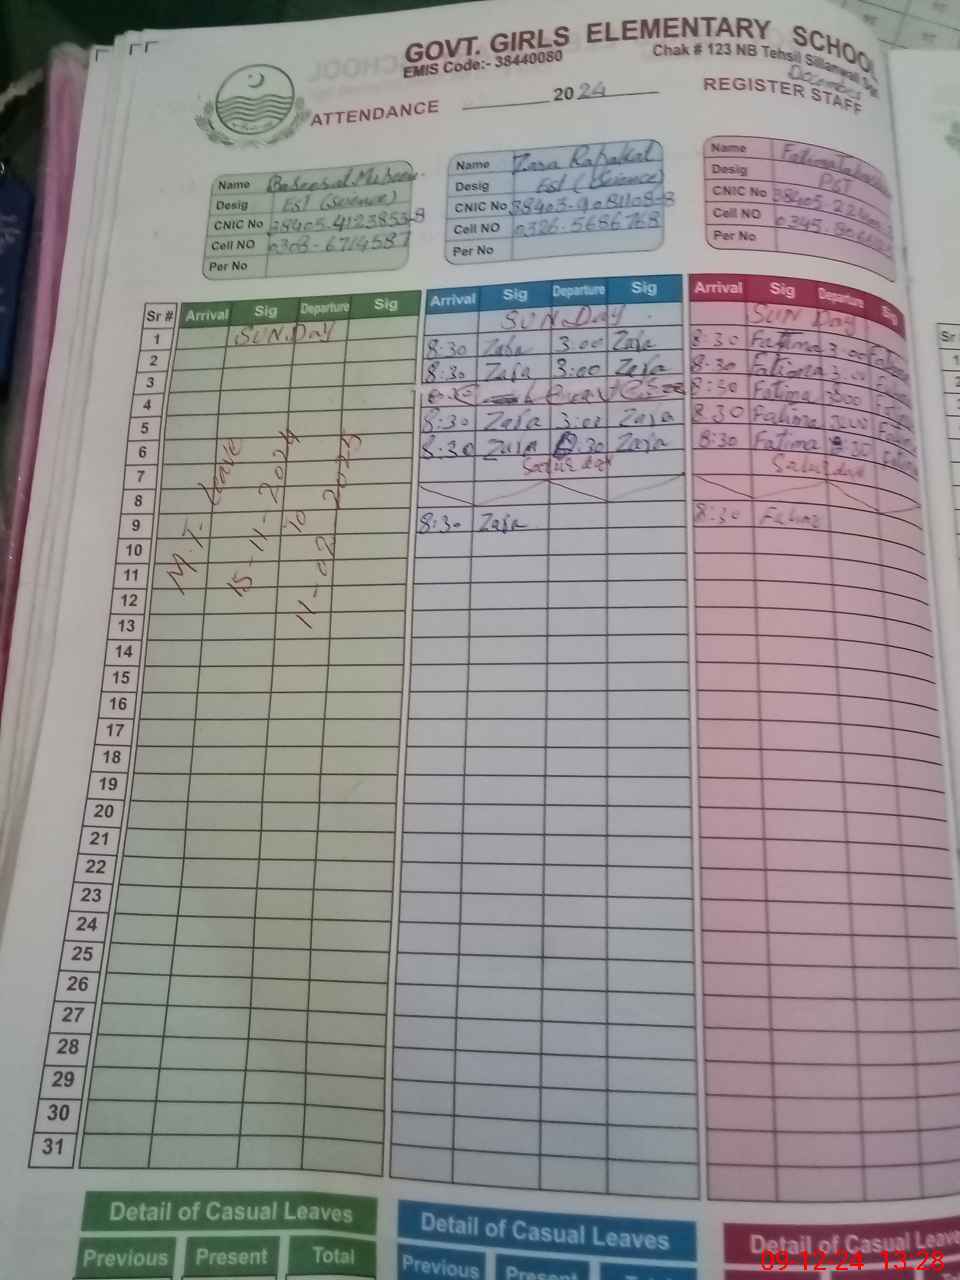 GOVT. GIRLS ELEMENTARY SCHOOL
EMIS Code:- 38440080
Chak # 123 NB Tehsil Sillanwali
December
ATTENDANCE 2024 REGISTER STAFF
Name
Desig EST (Science)
CNIC No 38405-4123853-8
Cell NO 0308-6714587
Per No
Name Zara
Desig Est (Science)
CNIC No 38403-9081108-8
Cell NO 0326-5686768
Per No
Name Fatima
Desig PST
CNIC No 38405-
Cell NO 0345-
Per No
Sr # Arrival Sig Departure Sig Arrival Sig Departure Sig Arrival Sig Departure Sig
1 SUNDAY SUNDAY SUNDAY
2 8:30 Zara 3:00 Zara 8:30 Fatima 3:00 Fatima
3 8:30 Zara 3:00 Zara 8:30 Fatima 3:00 Fatima
4 8:30 Fatima 3:00 Fatima
5 8:30 Zara 3:00 Zara 8:30 Fatima 3:00 Fatima
6 8:30 Zara :30 Zara 8:30 Fatima :30 Fatima
7
8
9 8:30 Zara 8:30 Fatima
10
11
12
13
14
15
16
17
18
19
20
21
22
23
24
25
26
27
28
29
30
31
M.T. Leave
15-11-2024
to
11-02-2025
Detail of Casual Leaves
Previous Present Total
Detail of Casual Leaves
Previous Present
Detail of Casual Leave
09-12-24 13:28